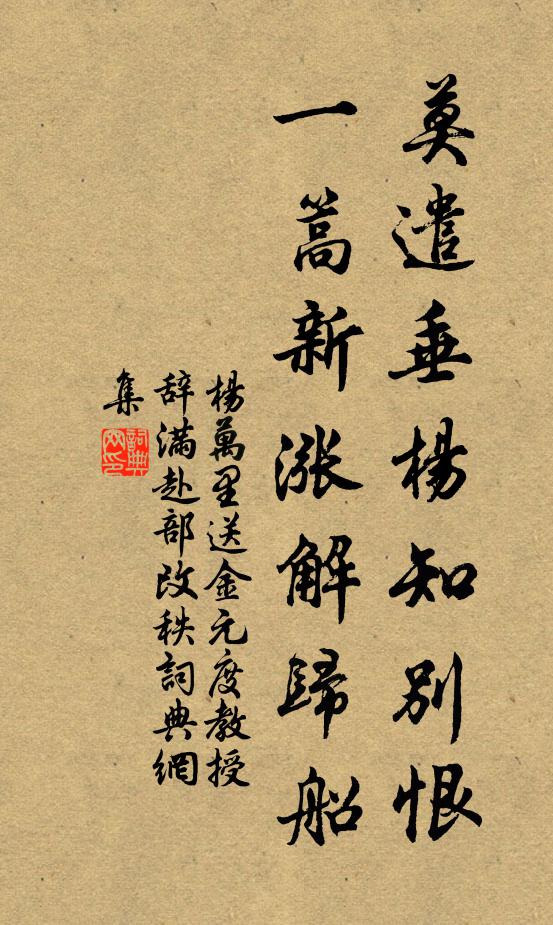 莫遣垂楊知別恨
一篙新漲解歸船
楊萬里送金元度教授
辭滿赴部改秩詞典網
集
詞典
网印